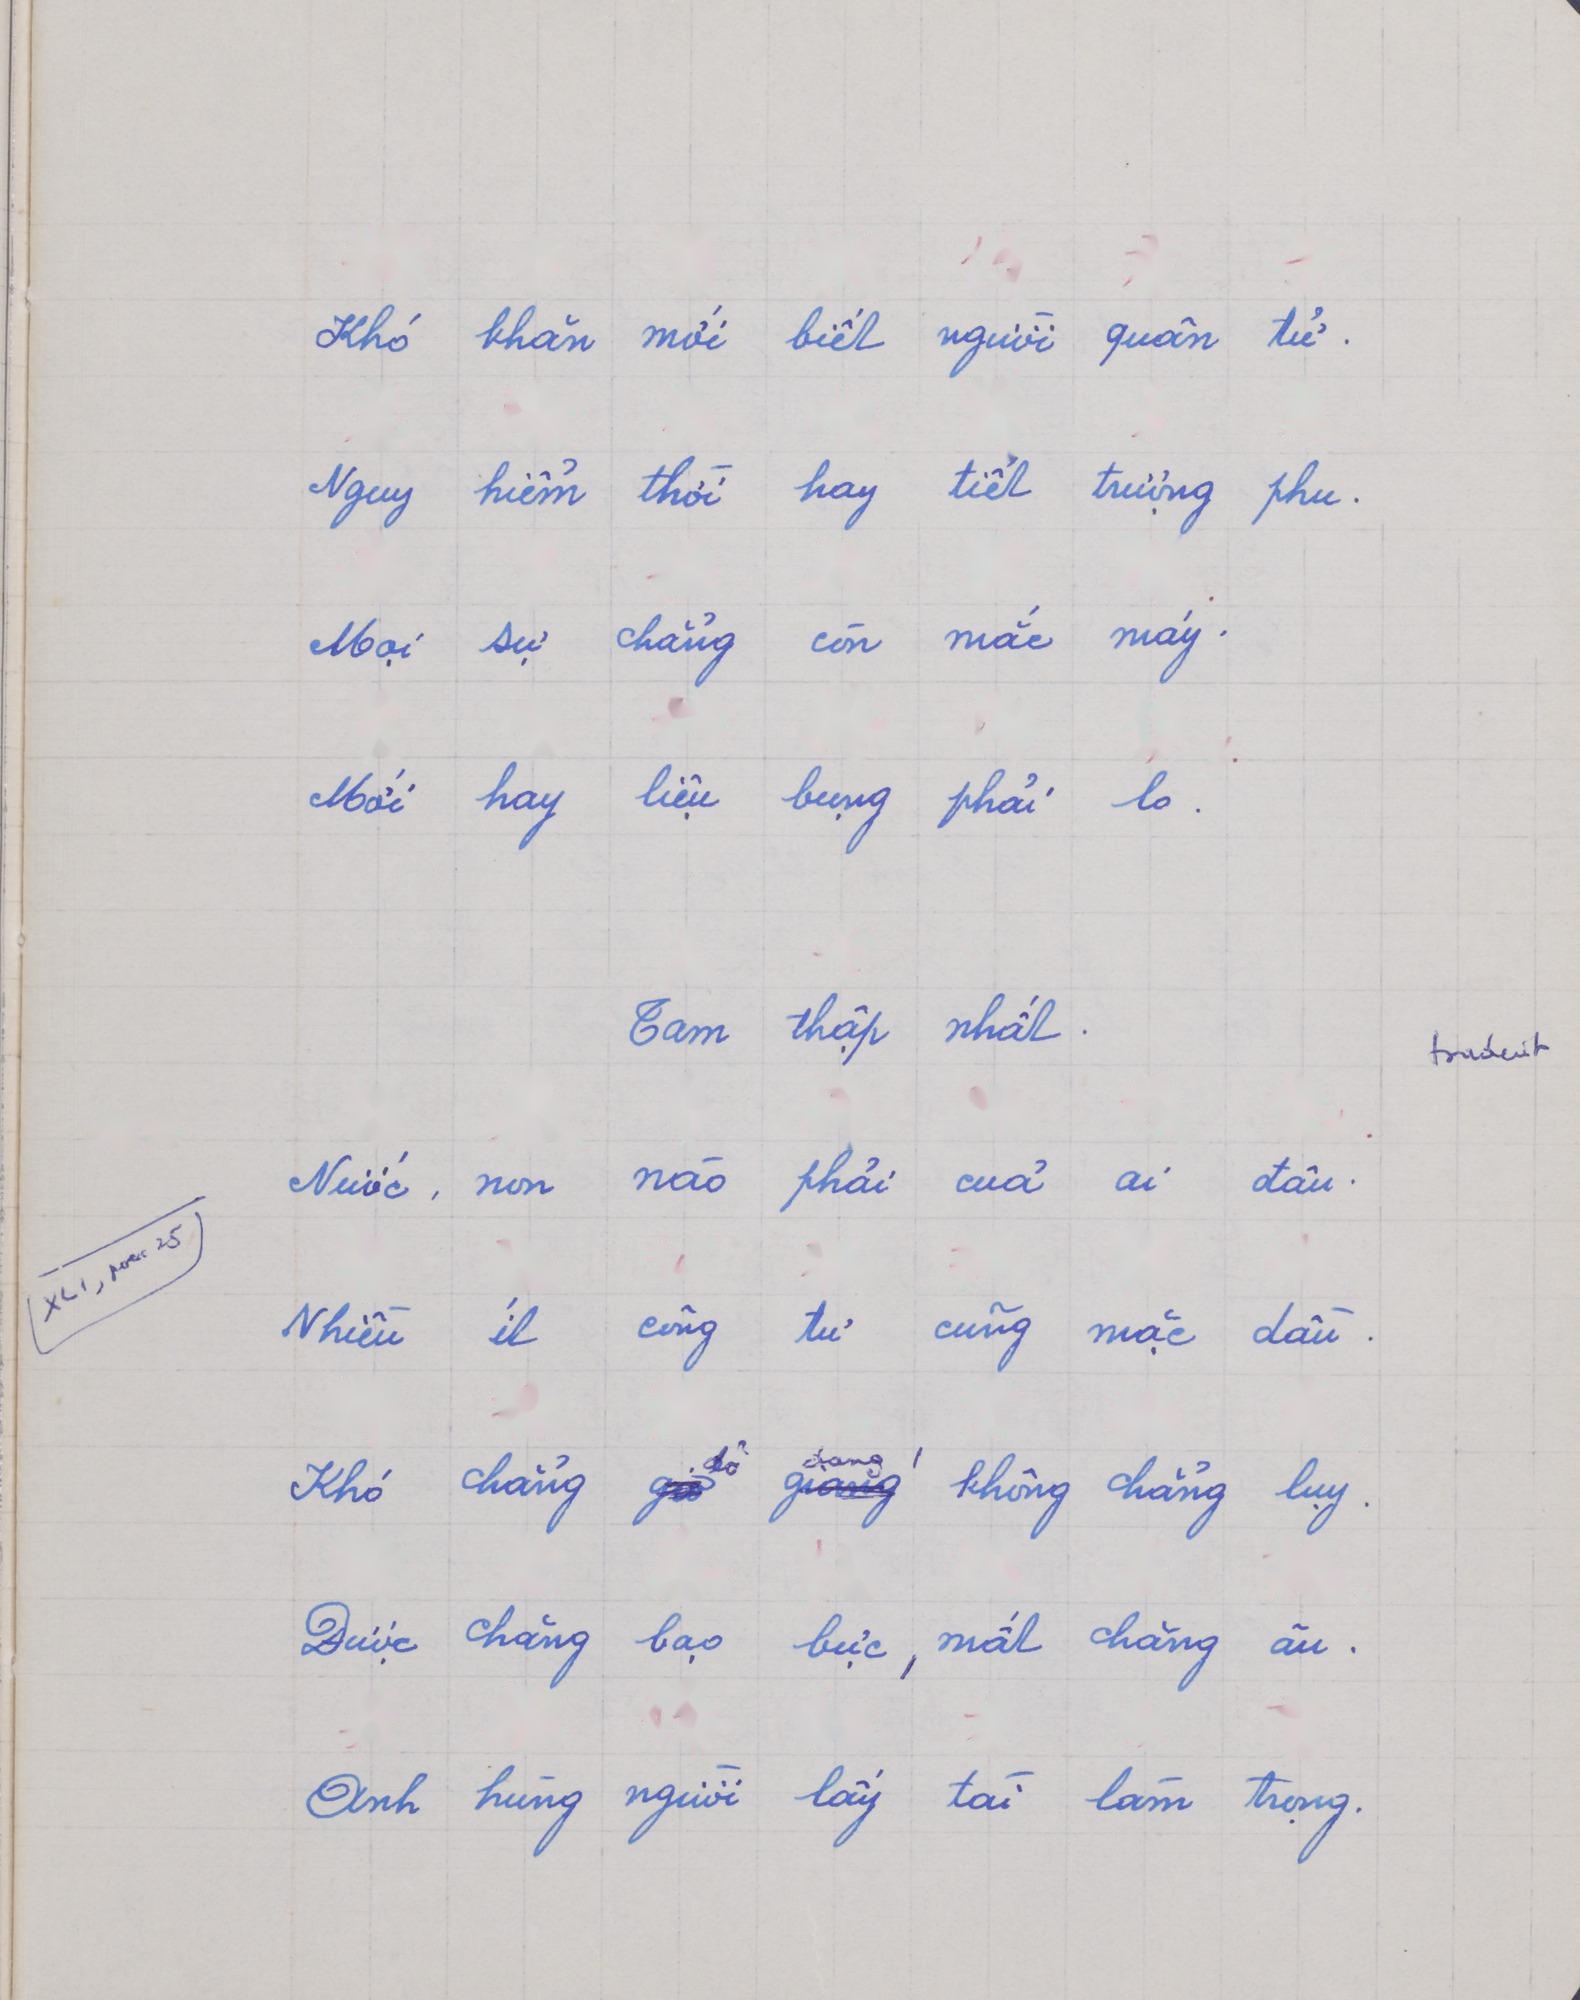 Khó khăn mới biết người quân tử.
Nguy hiểm thời hay tiết trượng phu.
Mọi sự chẳng còn mắc máy.
Mới hay liệu bụng phải lo.
Tam thập nhất.
Nước, non nào phải cuả ai đâu.
XLI, 25
Nhiều ít công tư cũng mặc dầu.
dở dang
Khó chẳng giở giang không chẳng lụy.
Được chăng bạo bực, mất chăng âu.
Anh hùng người lấy tài làm trọng.